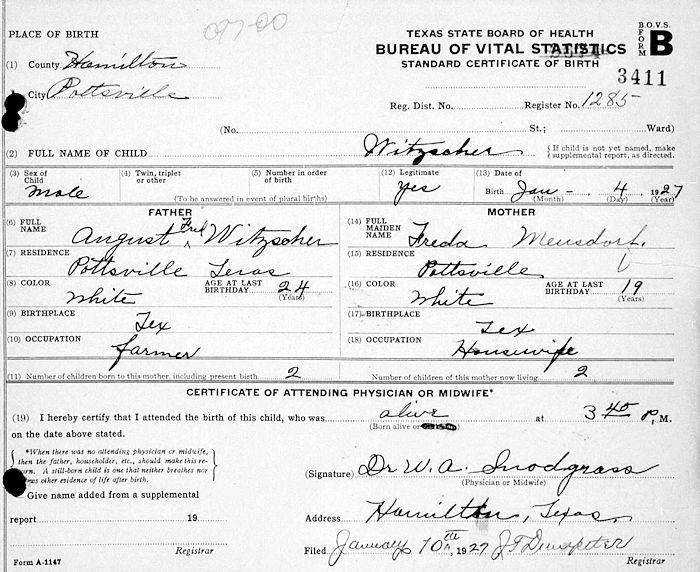 PLACE OF BIRTH
TEXAS STATE BOARD OF HEALTH
BUREAU OF VITAL STATISTICS
STANDARD CERTIFICATE OF BIRTH
B.O.V.S.
FORM B
(1) County Hamilton
City Pottsville
3411
Reg. Dist. No. Register No. 1285
(No. St.; Ward)
(2) FULL NAME OF CHILD Witzscher { If child is not yet named, make supplemental report, as directed.
(3) Sex of Child Male (4) Twin, triplet or other (5) Number in order of birth (To be answered in event of plural births) (12) Legitimate Yes (13) Date of Birth Jan - 4 1927 (Month) (Day) (Year)
FATHER
(6) FULL NAME August Fred Witzscher
(7) RESIDENCE Pottsville Texas
(8) COLOR White AGE AT LAST BIRTHDAY 24 (Years)
(9) BIRTHPLACE Tex
(10) OCCUPATION farmer
MOTHER
(14) FULL MAIDEN NAME Freda Mensdorf
(15) RESIDENCE Pottsville
(16) COLOR White AGE AT LAST BIRTHDAY 19 (Years)
(17) BIRTHPLACE Tex
(18) OCCUPATION Housewife
(11) Number of children born to this mother, including present birth 2 Number of children of this mother now living 2
CERTIFICATE OF ATTENDING PHYSICIAN OR MIDWIFE*
(19) I hereby certify that I attended the birth of this child, who was alive at 3 40 P, M.
(Born alive or
on the date above stated.
{ *When there was no attending physician or midwife,
then the father, householder, etc., should make this re-
turn. A still-born child is one that neither breathes nor
has other evidence of life after birth. }
(Signature) Dr W. A. Snodgrass
(Physician or Midwife)
Give name added from a supplemental
report 19
Registrar
Address Hamilton, Texas
Filed January 10th, 1927
Registrar
Form A-1147